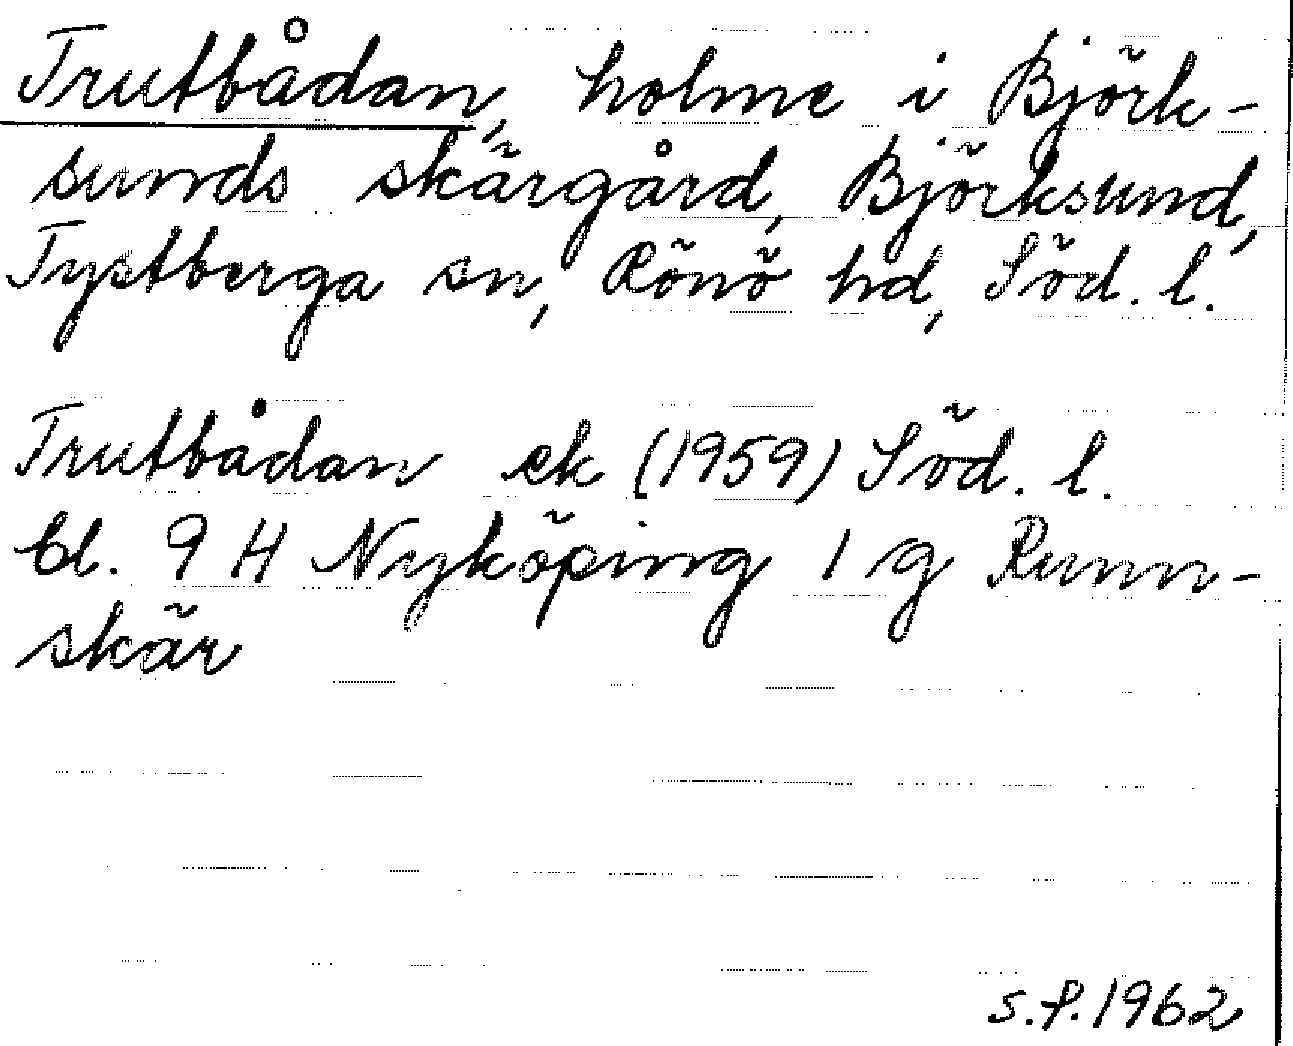 Trutbådan, holme i Björk-
sunds skärgård, Björksund,
Tystberga sn, Rönö hd, Söd. l.
Trutbådan ek (1959) Söd. l.
bl. 9 H Nyköping 1 g Runn-
skär
S.P. 1962